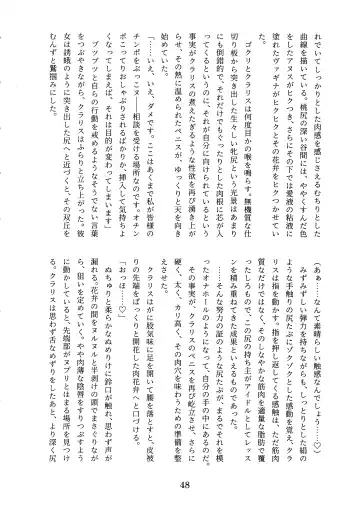 れでいてしっかりとした肉感を感じさえるむちりとした
曲線を描いている。桃尻の深い谷間には、ややくすんだ色
のアヌスがヒクつき、さらにその下では愛液の粘液に
塗れていたヴァギナがヒクヒクとその花弁をヒクつかせてい
　ゴクリとクラリスは何度目かの喉を鳴らす。無機質な仕
切り板から突き出した生々しい牝尻という光景はあまり
にも倒錯的で、それだけでもぐったりとした肉根に芯が入
ってくるというのに、それが自分に向けられているという
事実がクラリスの煮えたぎるような性欲を再び湧き上が
らせ、その熱に温められたペニスが、ゆっくりと天を向き
始めていた。
「……いえ、いえ、ダメです。ここはあくまで私が皆様の
チンポをぶっこヌ――相談を受ける場所なのです。オチン
ポこってりおしゃぶりされるばかりか、挿入して気持ちよ
くなってしまえば、それは目的が変わってしまいます」
　ブツブツと自らの行動を戒めるようなそうでない言葉
をつぶやきながら、クラリスはふらりと立ち上がった。彼
女は誘蛾のように突き出した尻へと近づくと、その双丘を
むんずと鷲掴みにした。
（あぁ……なんて素晴らしい触感なんでしょう……♡）
　みずみずしい弾力を持ちながらも、しっとりとした絹の
ような手触りの尻たぶにゾクゾクとした感動を覚え、クラ
リスは指を動かす。指を押し返してくる感触は、ただ筋肉
質なだけではなく、そのしなやかな筋肉を適量な脂肪で覆
ったしろもので、この尻の持ち主がアイドルとしてレッス
ンを積み重ねてきた成果といえるものであった。
　……そんな努力の証のような尻たぶが、まるでそれを模
ったオナホールのようになって、自分の手の中にあるのだ。
　その事実が、クラリスのペニスを再び屹立させ、さらに
硬く、太く、カリ高く、その肉穴を味わうための準備を整
えさせた。
　クラリスはがに股気味に足を開いて腰を落とすと、皮被
りの先端をぱっくりと開花した肉花弁へと口づける。
「おっほ……♡」
　ぬちゅりと柔らかなぬめりけに鈴口が触れ、思わず声が
漏れる。花弁の間をヌルヌルと半剥けの頭でまさぐりなが
ら、狙いを定めていく。やや肉薄な陰唇をすりつぶすよう
に動かしていると、先端部がヌブリとはまる場所を見つけ
る。クラリスは思わず舌なめずりをしたあと、より深く尻
48